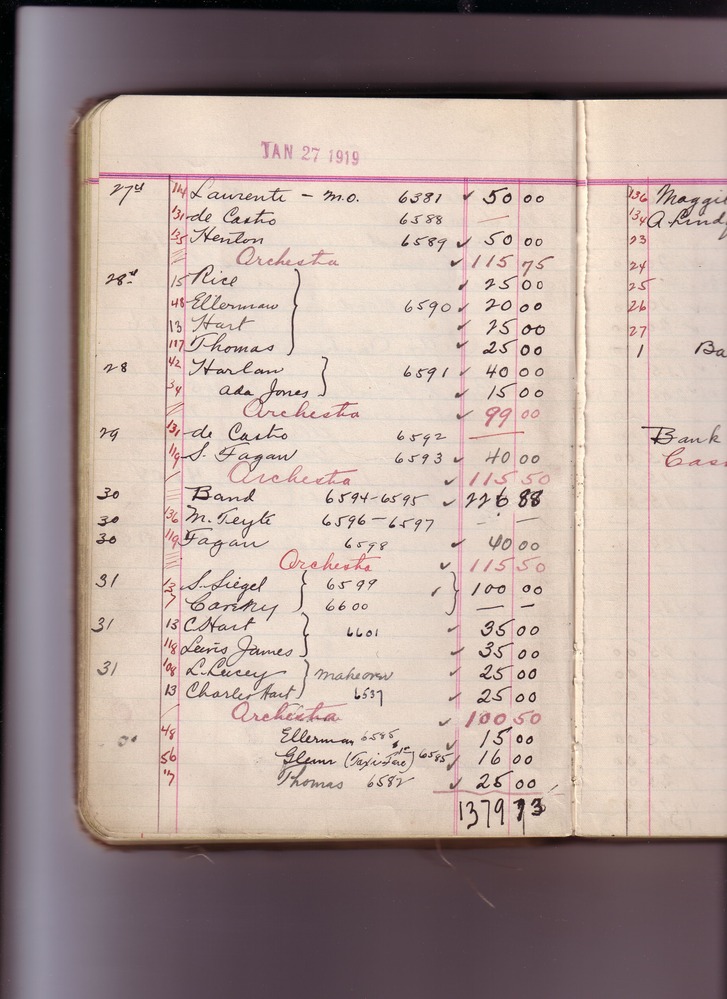 JAN 27 1919
27th 114 Laurente - M.O. 6381 ✓ 50 00
131 de Castro 6588 —
135 Henton 6589 ✓ 50 00
Orchestra ✓ 115 75
28th 15 Rice ✓ 25 00
48 Ellerman 6590 ✓ 20 00
13 Hart ✓ 25 00
117 Thomas ✓ 25 00
28 42 Harlan 6591 ✓ 40 00
34 Ada Jones ✓ 15 00
Orchestra ✓ 99 00
29 131 de Castro 6592 —
119 S. Fagan 6593 ✓ 40 00
Orchestra ✓ 115 50
30 Band 6594-6595 ✓ 226 88
30 136 M. Teyte 6596-6597 - —
30 119 Fagan 6598 ✓ 40 00
Orchestra ✓ 115 50
31 13 S. Siegel 6599 ✓ 100 00
7 6600 — —
31 13 C Hart 6601 ✓ 35 00
118 Lewis James ✓ 35 00
31 108 L. Lucey makeover ✓ 25 00
13 Charles Hart 6537 ✓ 25 00
Orchestra ✓ 100 50
48 Ellerman 6585 ✓ 15 00
56 Glenn (Taxi Fare) 6585 ✓ 16 00
Thomas 6582 ✓ 25 00
1379 13
136 Maggie
134
23
24
25
26
27
1 Ba
Bank
Cas